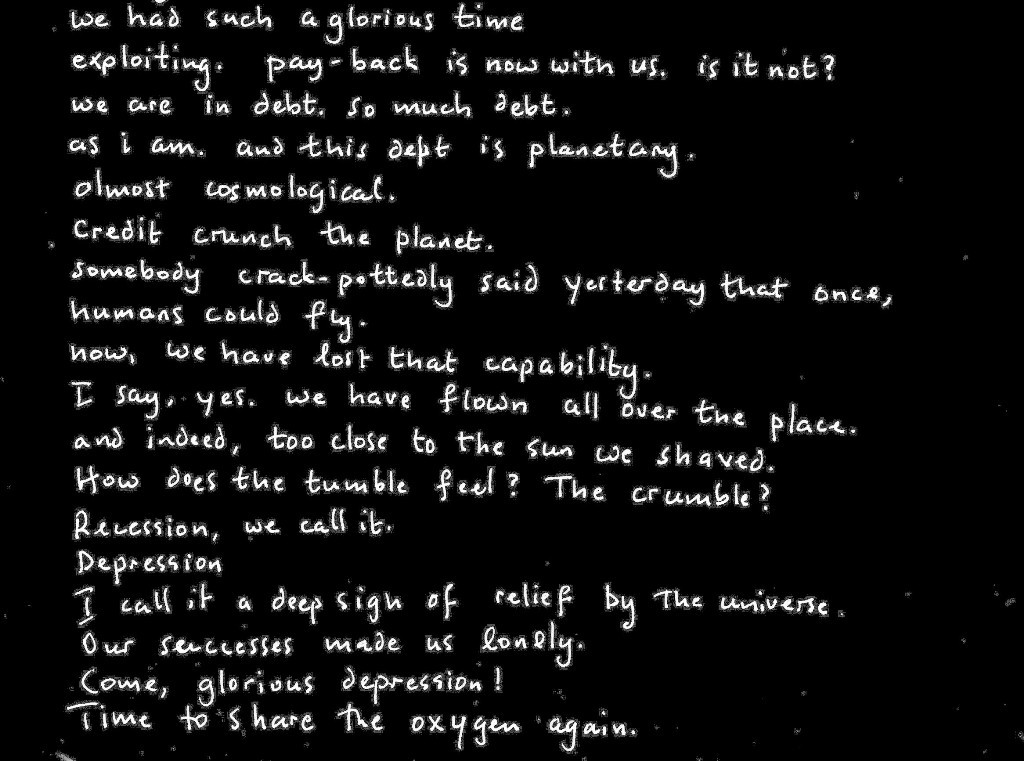 we had such a glorious time
exploiting. pay-back is now with us. is it not?
we are in debt. so much debt.
as i am. and this dept is planetary.
olmost cosmological.
Credit crunch the planet.
somebody crack-pottedly said yesterday that once,
humans could fly.
now, we have lost that capability.
I say, yes. we have flown all over the place.
and indeed, too close to the sun we shaved.
How does the tumble feel? The crumble?
Recession, we call it.
Depression
I call it a deep sign of relief by The universe.
Our successes made us lonely.
Come, glorious depression!
Time to share the oxygen again.